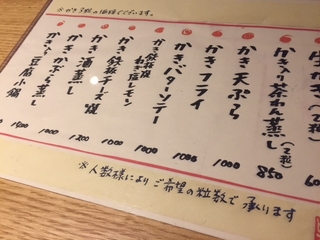 ※かき3粒の価格でございます。
生かき(一粒) 60
かき入り茶わん蒸し(一粒) 850
かき天ぷら 1000
かきフライ 1000
かきバターソテー 1000
かき鉄板焼 ねぎ塩レモン 1000
かき鉄板チーズ焼 1200
かき酒蒸し 1000
かきかぶら蒸し
かきみそ豆腐小鍋
※人数様によりご希望の粒数で承ります